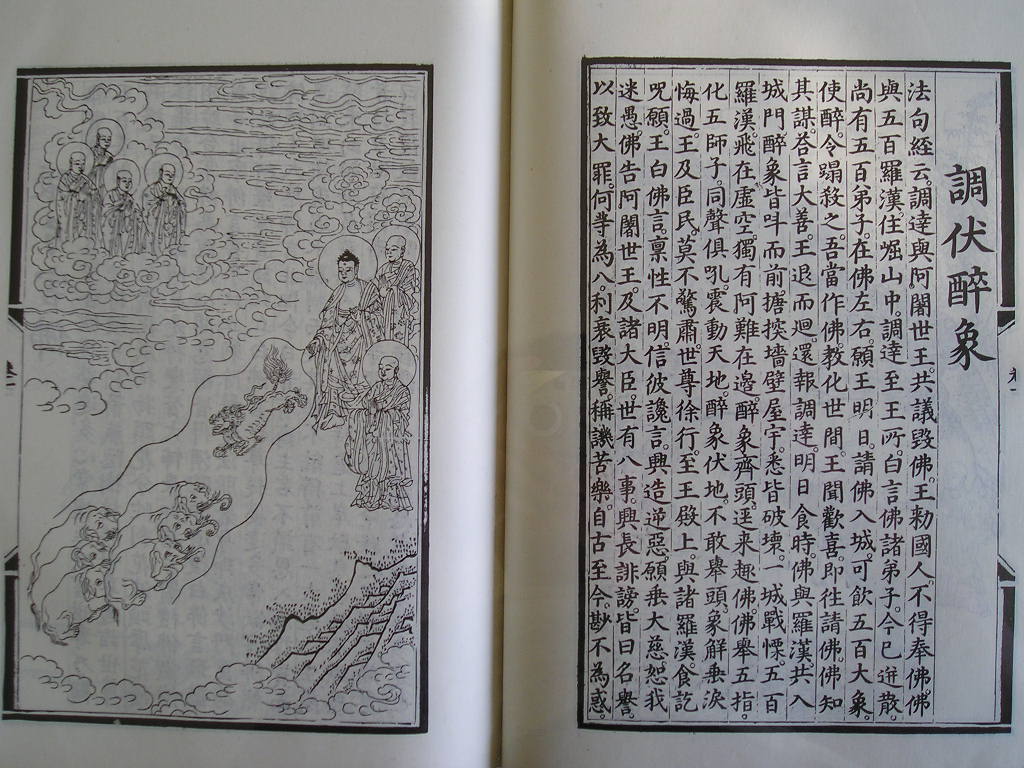 調伏醉象
法句經云。調達與阿闍世王。共議毀佛。王勑國人。不得奉佛。佛
與五百羅漢。住崛山中。調達至王所。白言。佛諸弟子。今已迸散。
尚有五百弟子。在佛左右。願王明日。請佛入城。可飲五百大象。
使醉。令蹋殺之。吾當作佛。教化世間。王聞歡喜。即往請佛。佛知
其謀。荅言大善。王退而迴。還報調達。明日食時。佛與羅漢。共入
城門。醉象皆吽而前。搪揬墻壁。屋宇。悉皆破壞。一城戰慄。五百
羅漢。飛在虛空。獨有阿難在邊。醉象齊頭。逕来趣佛。佛舉五指。
化五師子。同聲俱吼。震動天地。醉象伏地。不敢舉頭。象觧垂淚
悔過。王及臣民。莫不驚肅。世尊徐行。至王殿上。與諸羅漢。食訖
呪願。王白佛言。稟性不明。信彼讒言。興造逆惡。願垂大慈。恕我
迷愚。佛告阿闍世王。及諸大臣。世有八事。興長誹謗。皆曰名譽。
以致大罪。何等為八。利衰毀譽。稱譏苦樂。自古至今。尠不為惑。